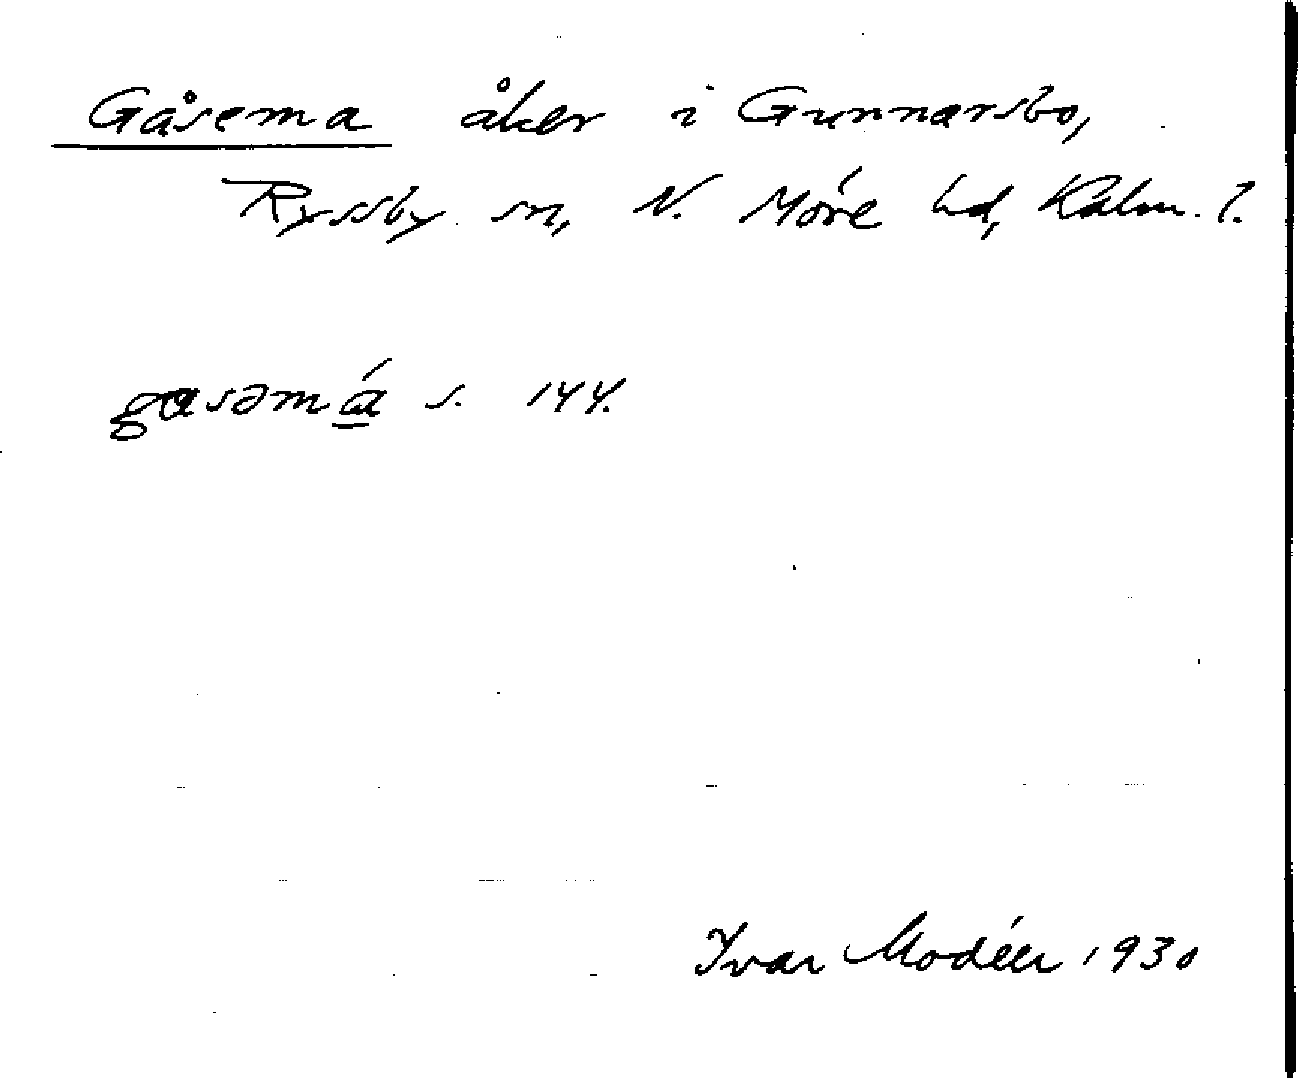 Gåsema åker i Gunnarsbo,
Ryssby sn, N. Möre hd, Kalm. l.
gɑsəmá s. 144.
Ivar Modéer 1930